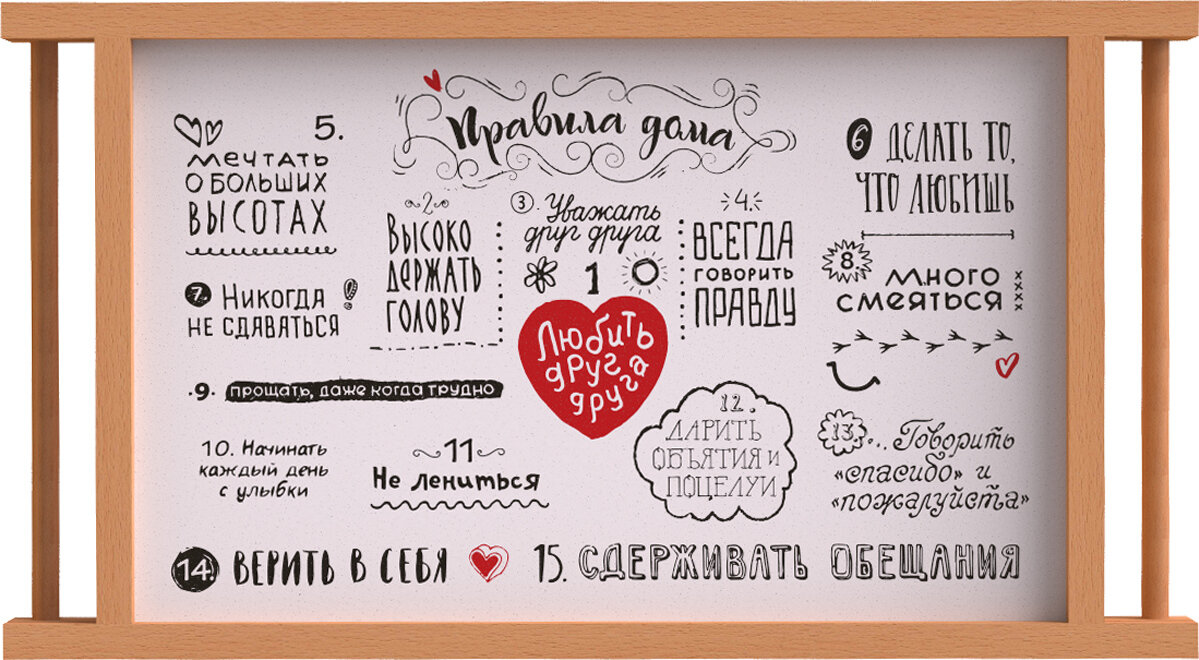 Правила дома
5.
мечтать
о больших
высотах
2.
Высоко
держать
голову
3. Уважать
друг друга
1
Любить
друг
друга
4.
Всегда
говорить
правду
6 Делать то,
что любишь
7. Никогда
не сдаваться!
8 много
смеяться
xxxx
.9. прощать, даже когда трудно
10. Начинать
каждый день
с улыбки
11
Не лениться
12.
Дарить
объятия и
поцелуи
13... Говорить
«спасибо» и
«пожалуйста»
14. Верить в себя
15. Сдерживать обещания